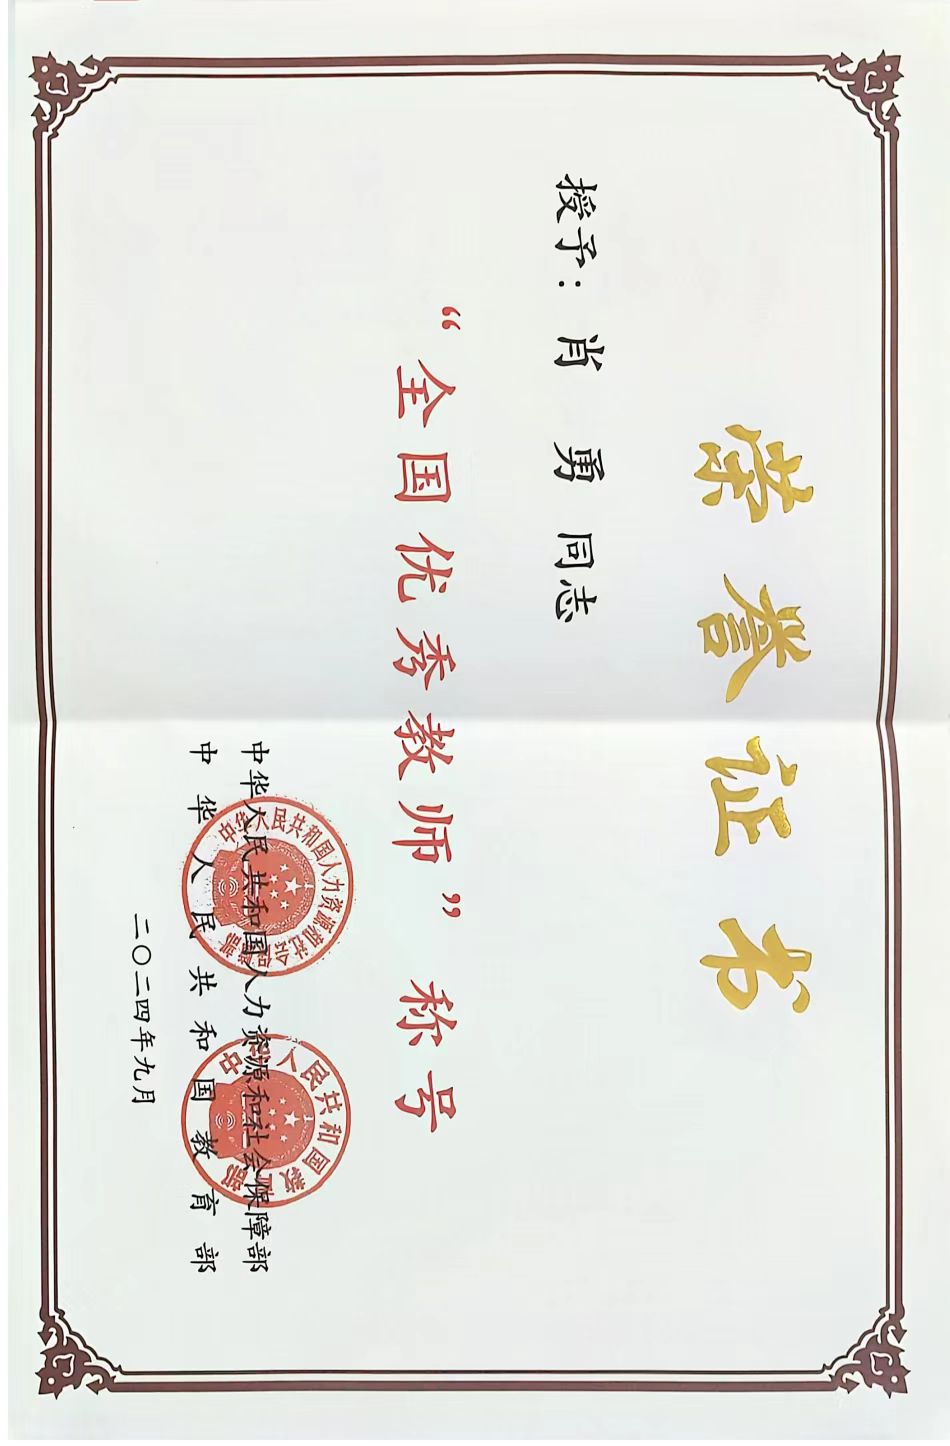 荣誉证书
授予：肖 勇 同志
“全国优秀教师”称号
中华人民共和国人力资源和社会保障部
中华人民共和国教育部
二〇二四年九月
中华人民共和国人力资源和社会保障部
中华人民共和国教育部